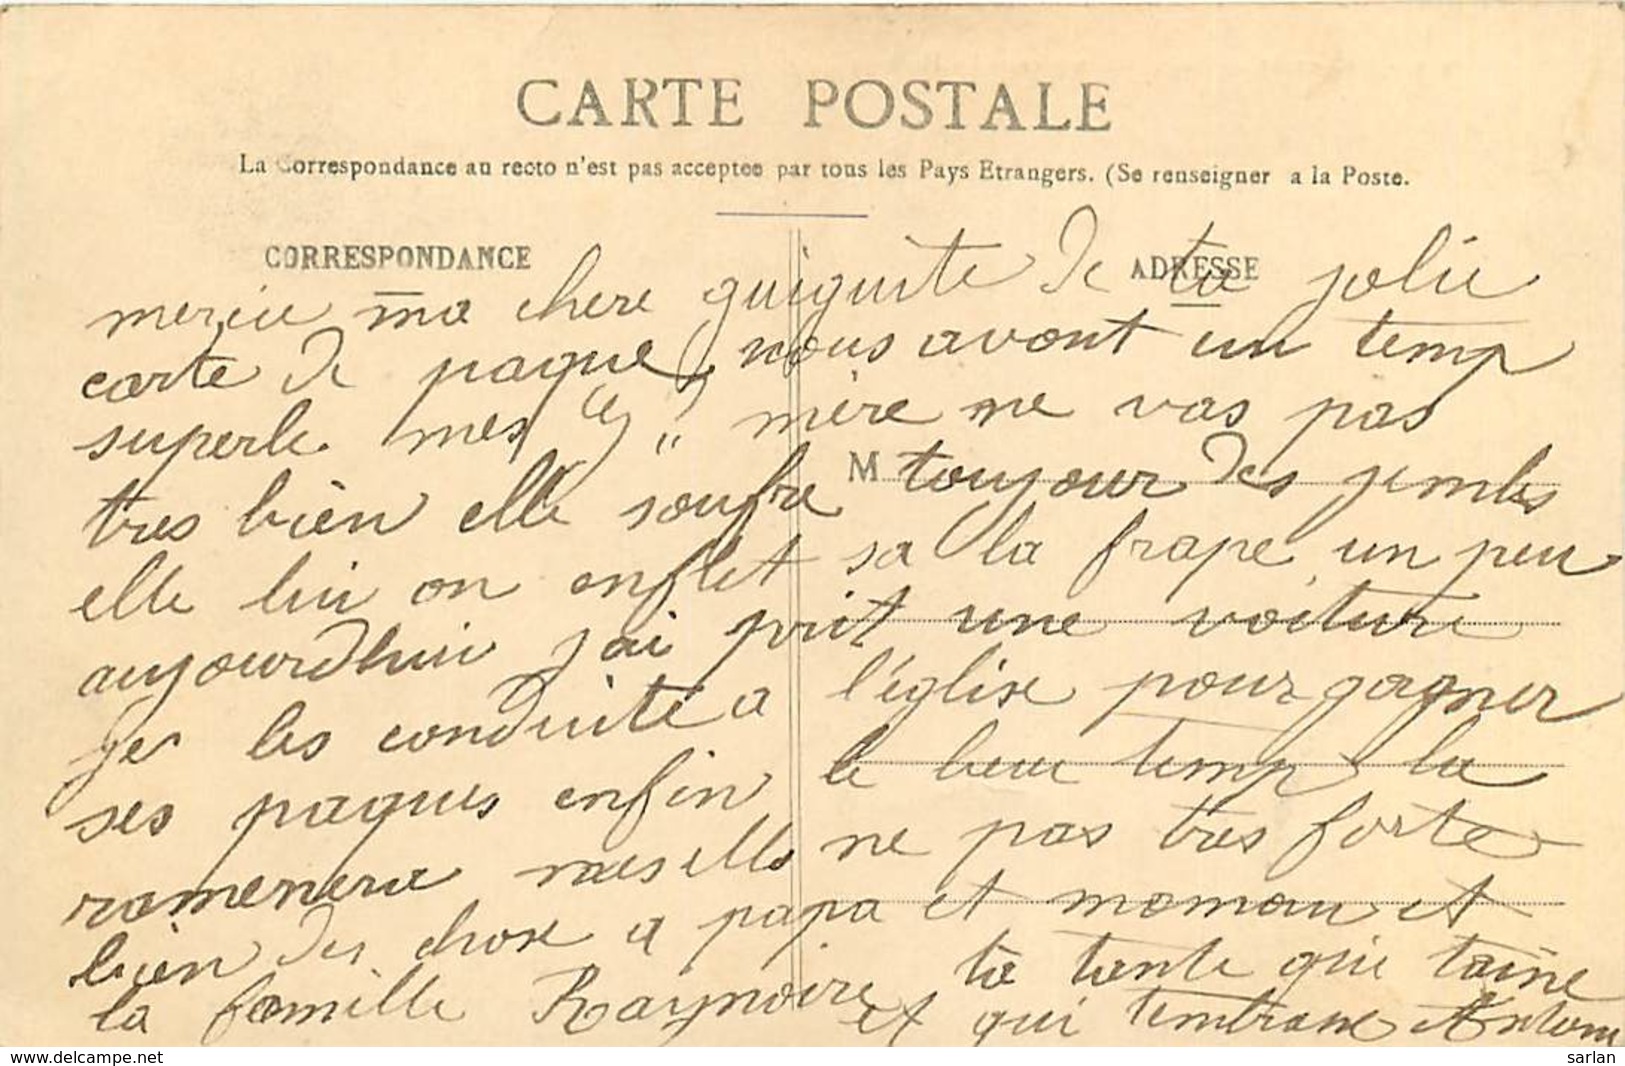 CARTE POSTALE
La Correspondance au recto n'est pas acceptee par tous les Pays Etrangers. (Se renseigner a la Poste.
CORRESPONDANCE
ADRESSE
M
ma chere de ta jolie
carte de paque, nous avont un temp
superbe mes mère ne vas pas
tres bien elle soufre toujour des jembes
elle lui on enflet sa la frape un peu
aujourdhui j'ai prit une voiture
je les conduite a l'église pour gagner
ses paques enfin le beau temp la
ramenera mes elle ne pas très forte
bien des chose a papa et maman et
la famille Raynoire ta tante qui taine
et qui tembrasse
www.delcampe.net
sarlan